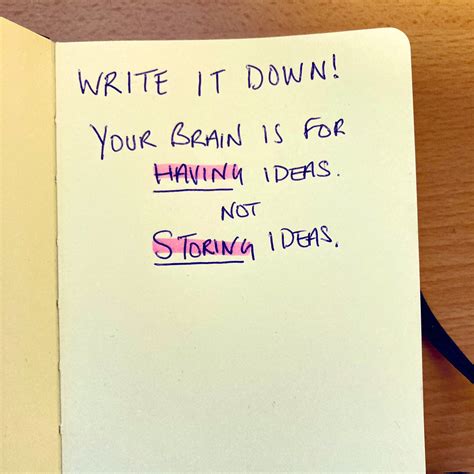 WRITE IT DOWN!
YOUR BRAIN IS FOR
HAVING IDEAS.
NOT
STORING IDEAS.